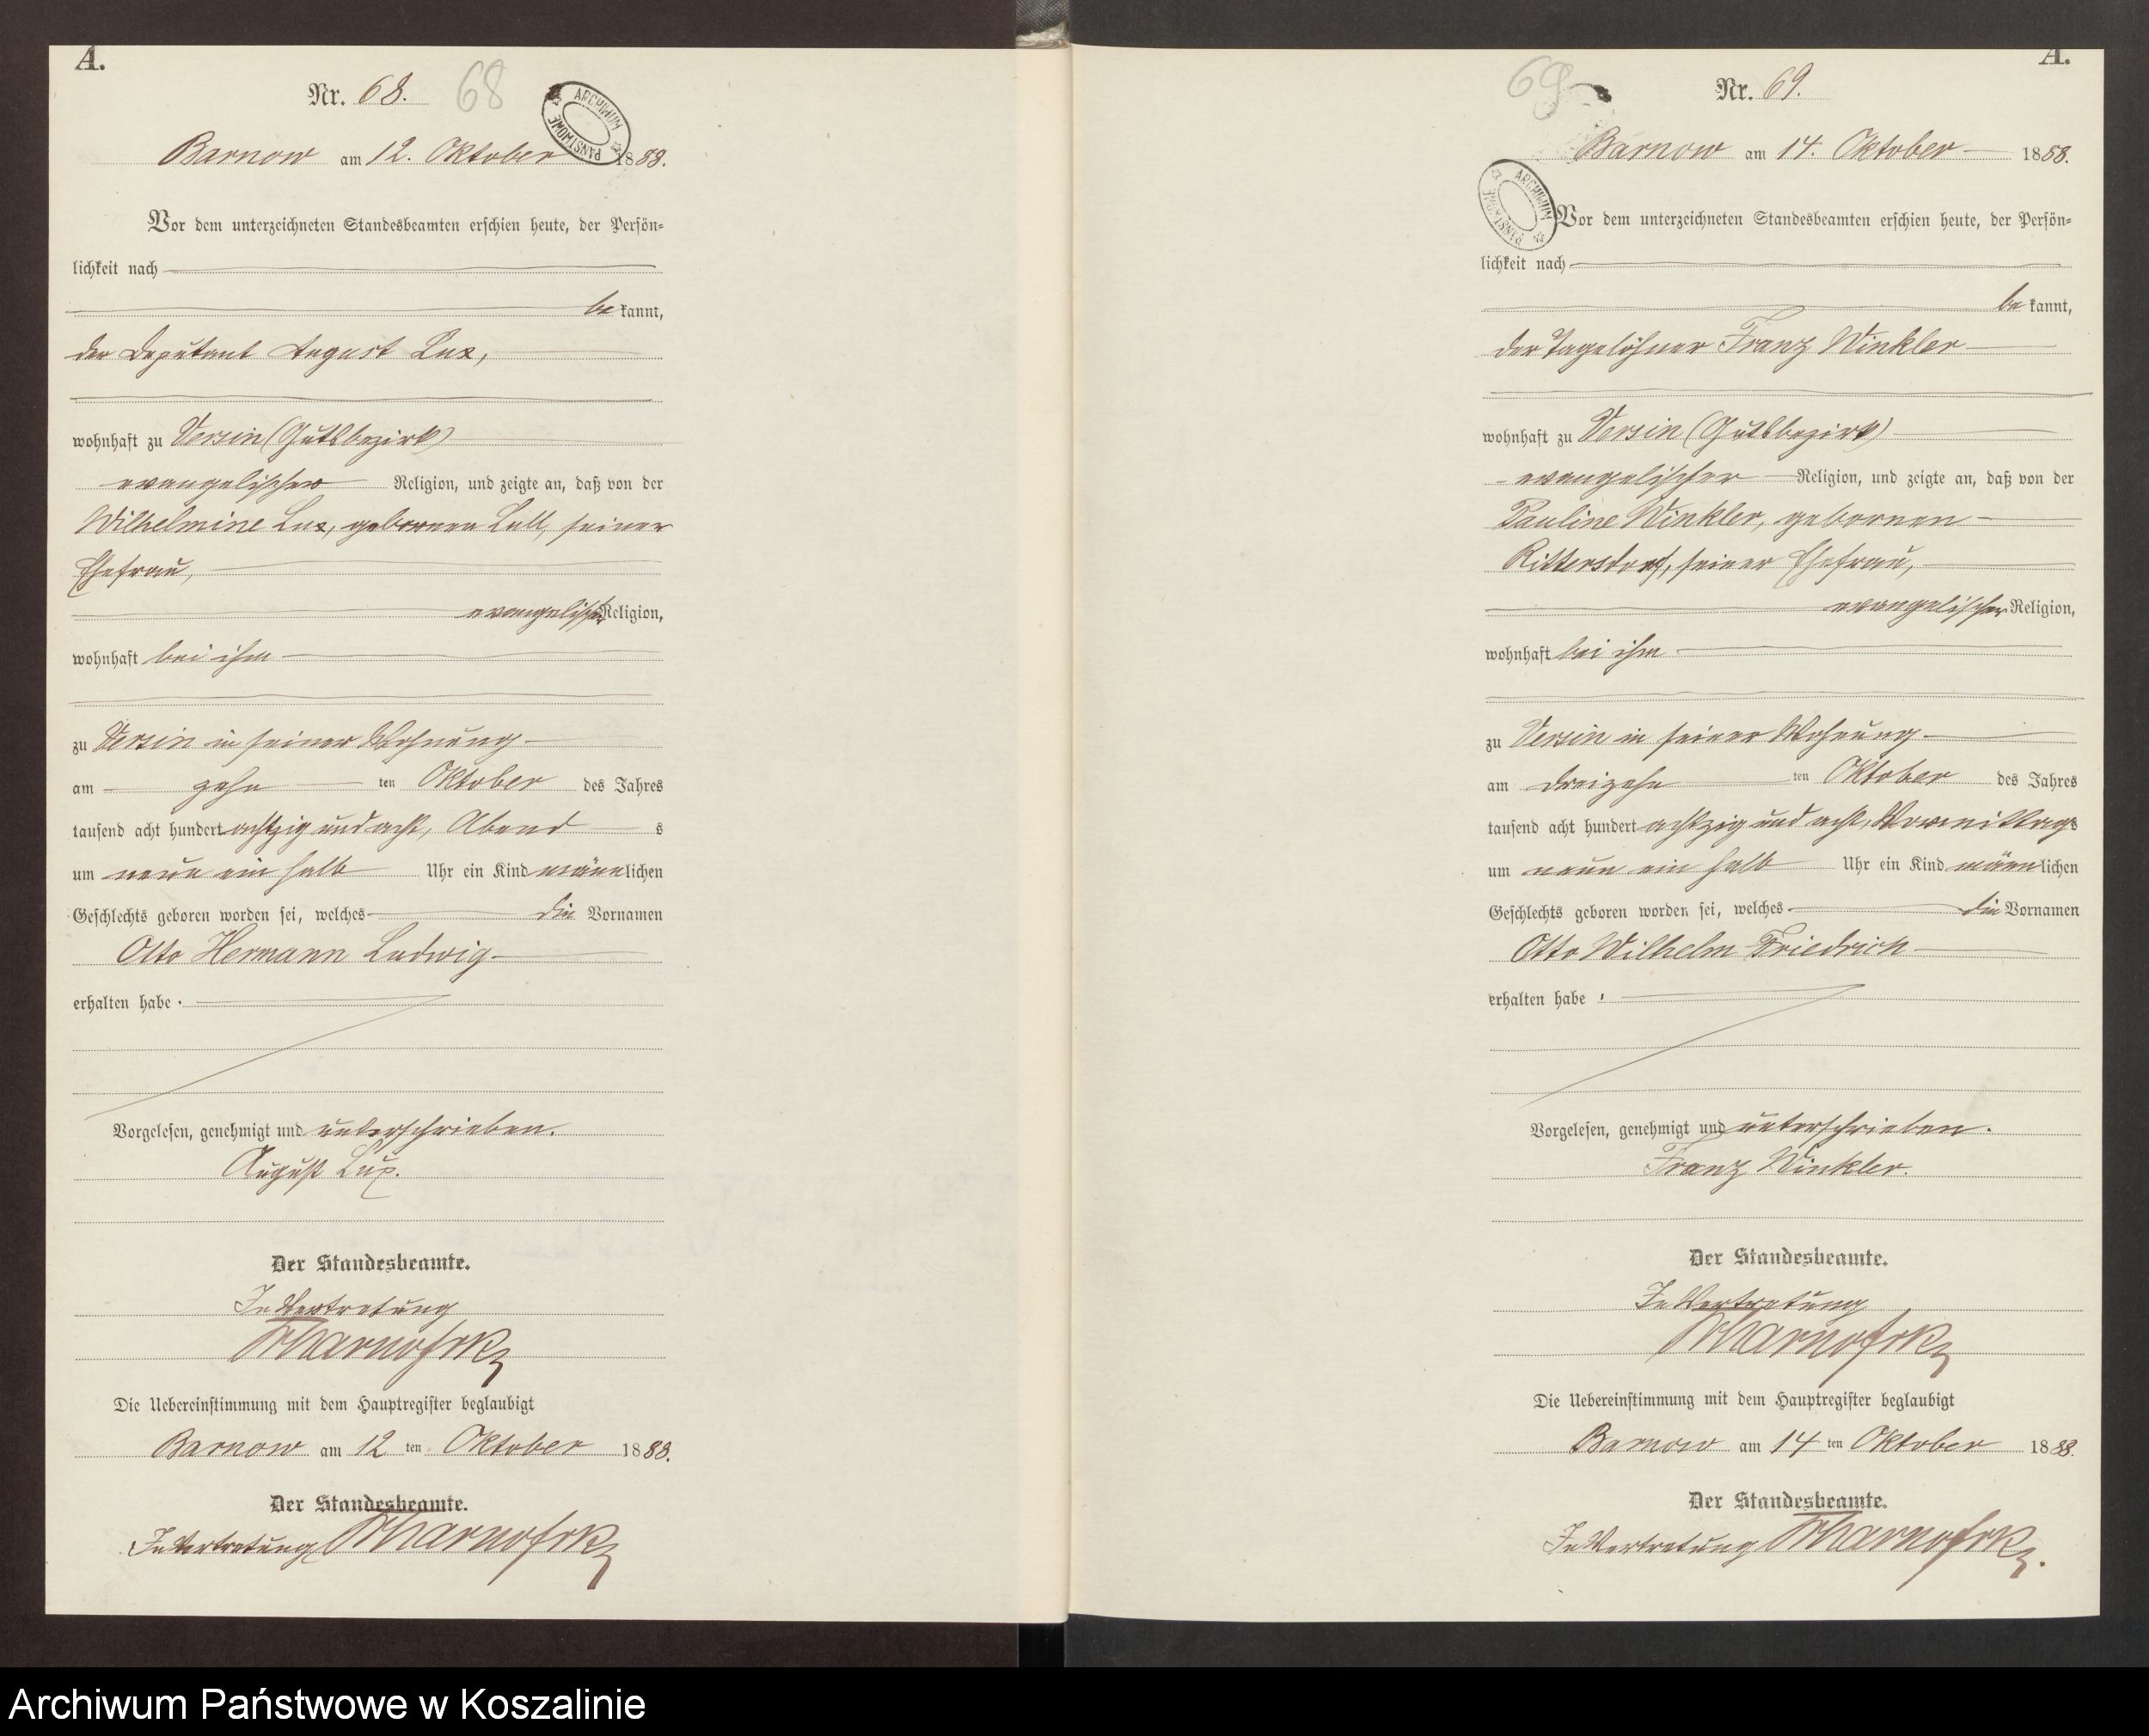 A.
Nr. 68. 68
ARCHIWUM PAŃSTWOWE
Barnow am 12. Oktober 1888.
Vor dem unterzeichneten Standesbeamten erschien heute, der Persön-
lichkeit nach
be kannt,
der Deputant August Lux,
wohnhaft zu Versin (Gutsbezirk)
evangelischer Religion, und zeigte an, daß von der
Wilhelmine Lux, geborenen Lall, seiner
Ehefrau,
evangelischer Religion,
wohnhaft bei ihm
zu Versin in seiner Wohnung
am zehn ten Oktober des Jahres
tausend acht hundert achtzig und acht, Abend s
um neun ein halb Uhr ein Kind männlichen
Geschlechts geboren worden sei, welches die Vornamen
Otto Hermann Ludwig
erhalten habe.
Vorgelesen, genehmigt und unterschrieben.
August Lux.
Der Standesbeamte.
In Vertretung
Die Uebereinstimmung mit dem Hauptregister beglaubigt
Barnow am 12 ten Oktober 1888.
Der Standesbeamte.
In Vertretung
A.
69 Nr. 69.
Barnow am 14. Oktober 1888.
ARCHIWUM PAŃSTWOWE
Vor dem unterzeichneten Standesbeamten erschien heute, der Persön-
lichkeit nach
be kannt,
der Tagelöhner Franz Winkler
wohnhaft zu Versin (Gutsbezirk)
evangelischer Religion, und zeigte an, daß von der
Pauline Winkler, geborenen
Rittersdorf, seiner Ehefrau,
evangelischer Religion,
wohnhaft bei ihm
zu Versin in seiner Wohnung
am dreizehn ten Oktober des Jahres
tausend acht hundert achtzig und acht, Vormittags
um neun ein halb Uhr ein Kind männlichen
Geschlechts geboren worden sei, welches die Vornamen
Otto Wilhelm Friedrich
erhalten habe.
Vorgelesen, genehmigt und unterschrieben.
Franz Winkler.
Der Standesbeamte.
In Vertretung
Die Uebereinstimmung mit dem Hauptregister beglaubigt
Barnow am 14 ten Oktober 1888.
Der Standesbeamte.
In Vertretung
Archiwum Państwowe w Koszalinie